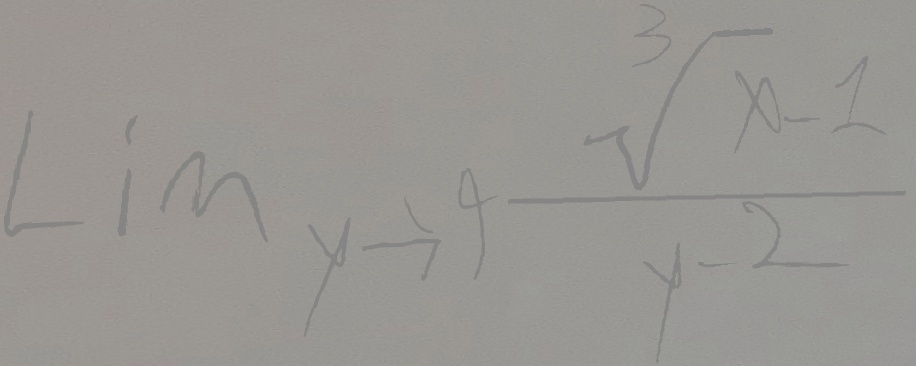 Lim y→4 ∛x-1
y-2